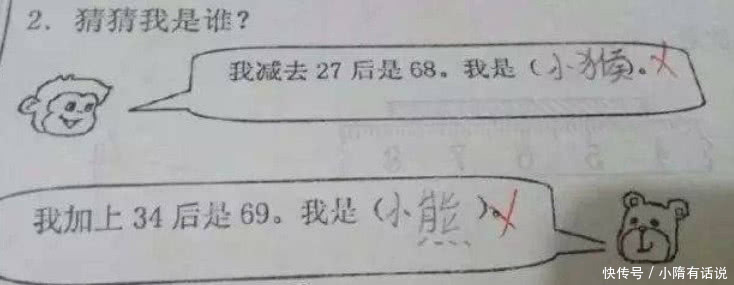 2. 猜猜我是谁?
我减去 27 后是 68。我是(小猴)。
我加上 34 后是 69。我是(小熊)。
快传号 / 小隋有话说